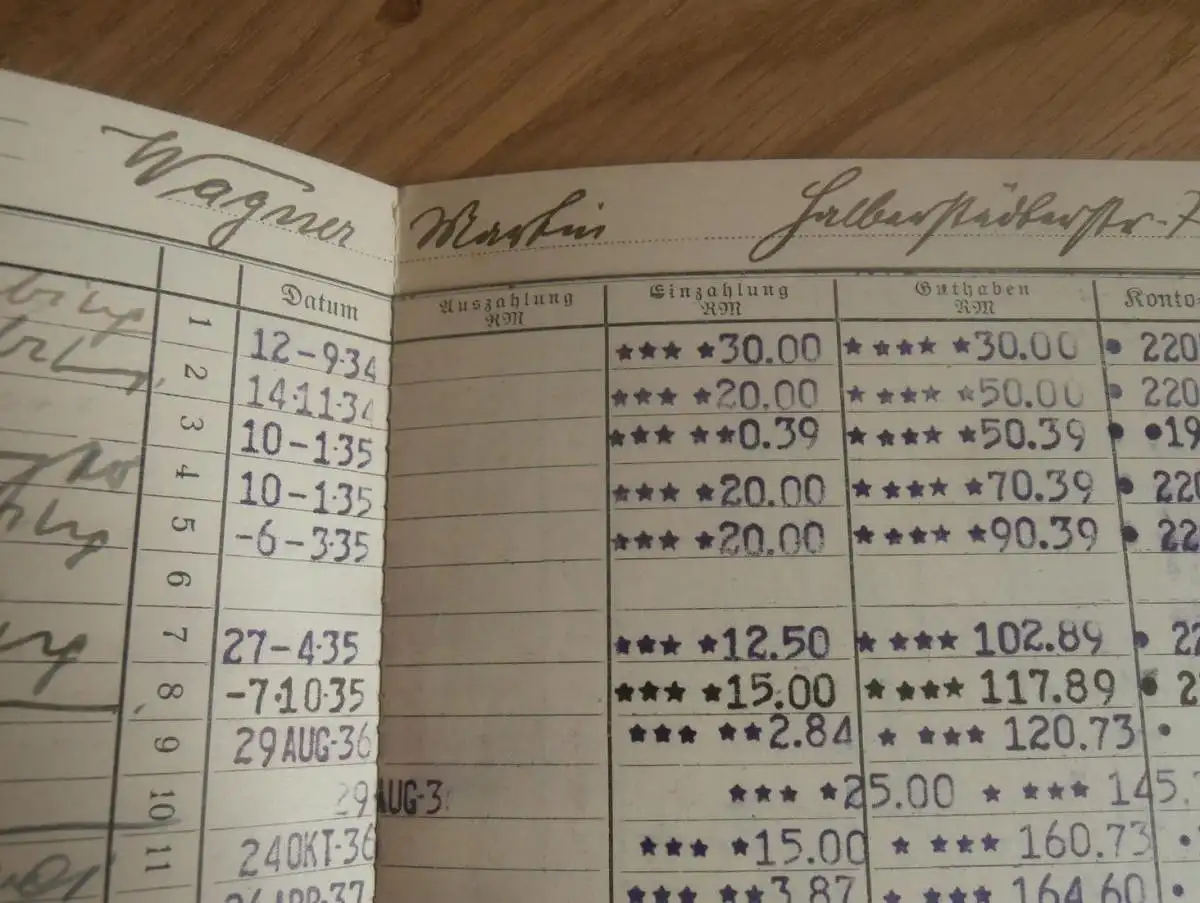 Wagner Martin Halberstädterstr. 7
Datum Auszahlung RM Einzahlung RM Guthaben RM Konto-
1 12-9·34 *** *30.00 **** *30.00 • 220
2 14·11·34 *** *20.00 **** *50.00 • 220
3 10-1·35 *** **0.39 **** *50.39 • •19
4 10-1·35 *** *20.00 **** *70.39 • 220
5 -6-3·35 *** *20.00 **** *90.39 • 22
6
7 27-4·35 *** *12.50 **** 102.89 • 22
8 -7·10·35 *** *15.00 **** 117.89 • 2
9 29AUG·36 *** **2.84 * *** 120.73 •
10 29AUG-3 *** *25.00 * *** 145.
11 24OKT·36 *** *15.00 * *** 160.73 •
26APR·37 *** **3.87 * *** 164.60 •